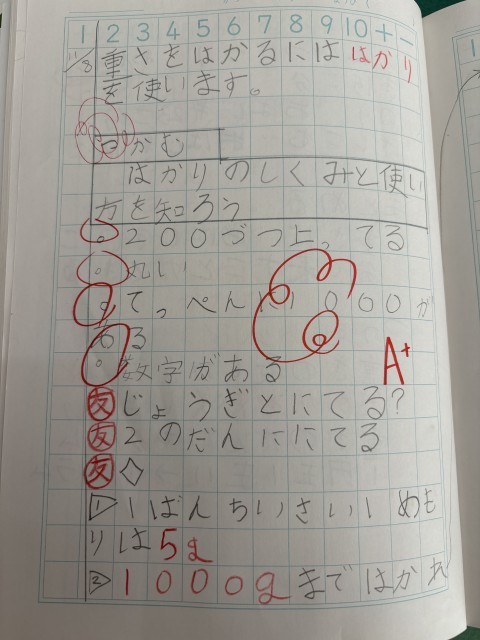 1 2 3 4 5 6 7 8 9 10 + −
11/8 重さをはかるには はかり
を使います。
つかむ
はかりのしくみと使い
方を知ろう
。200づつ上ってる
。丸い
。てっぺんに1000が
ある
。数字がある
A+
友 じょうぎとにてる?
友 2のだんににてる
友 ◇
1 1ばんちいさい1めも
りは5g
2 1000gまではかれ